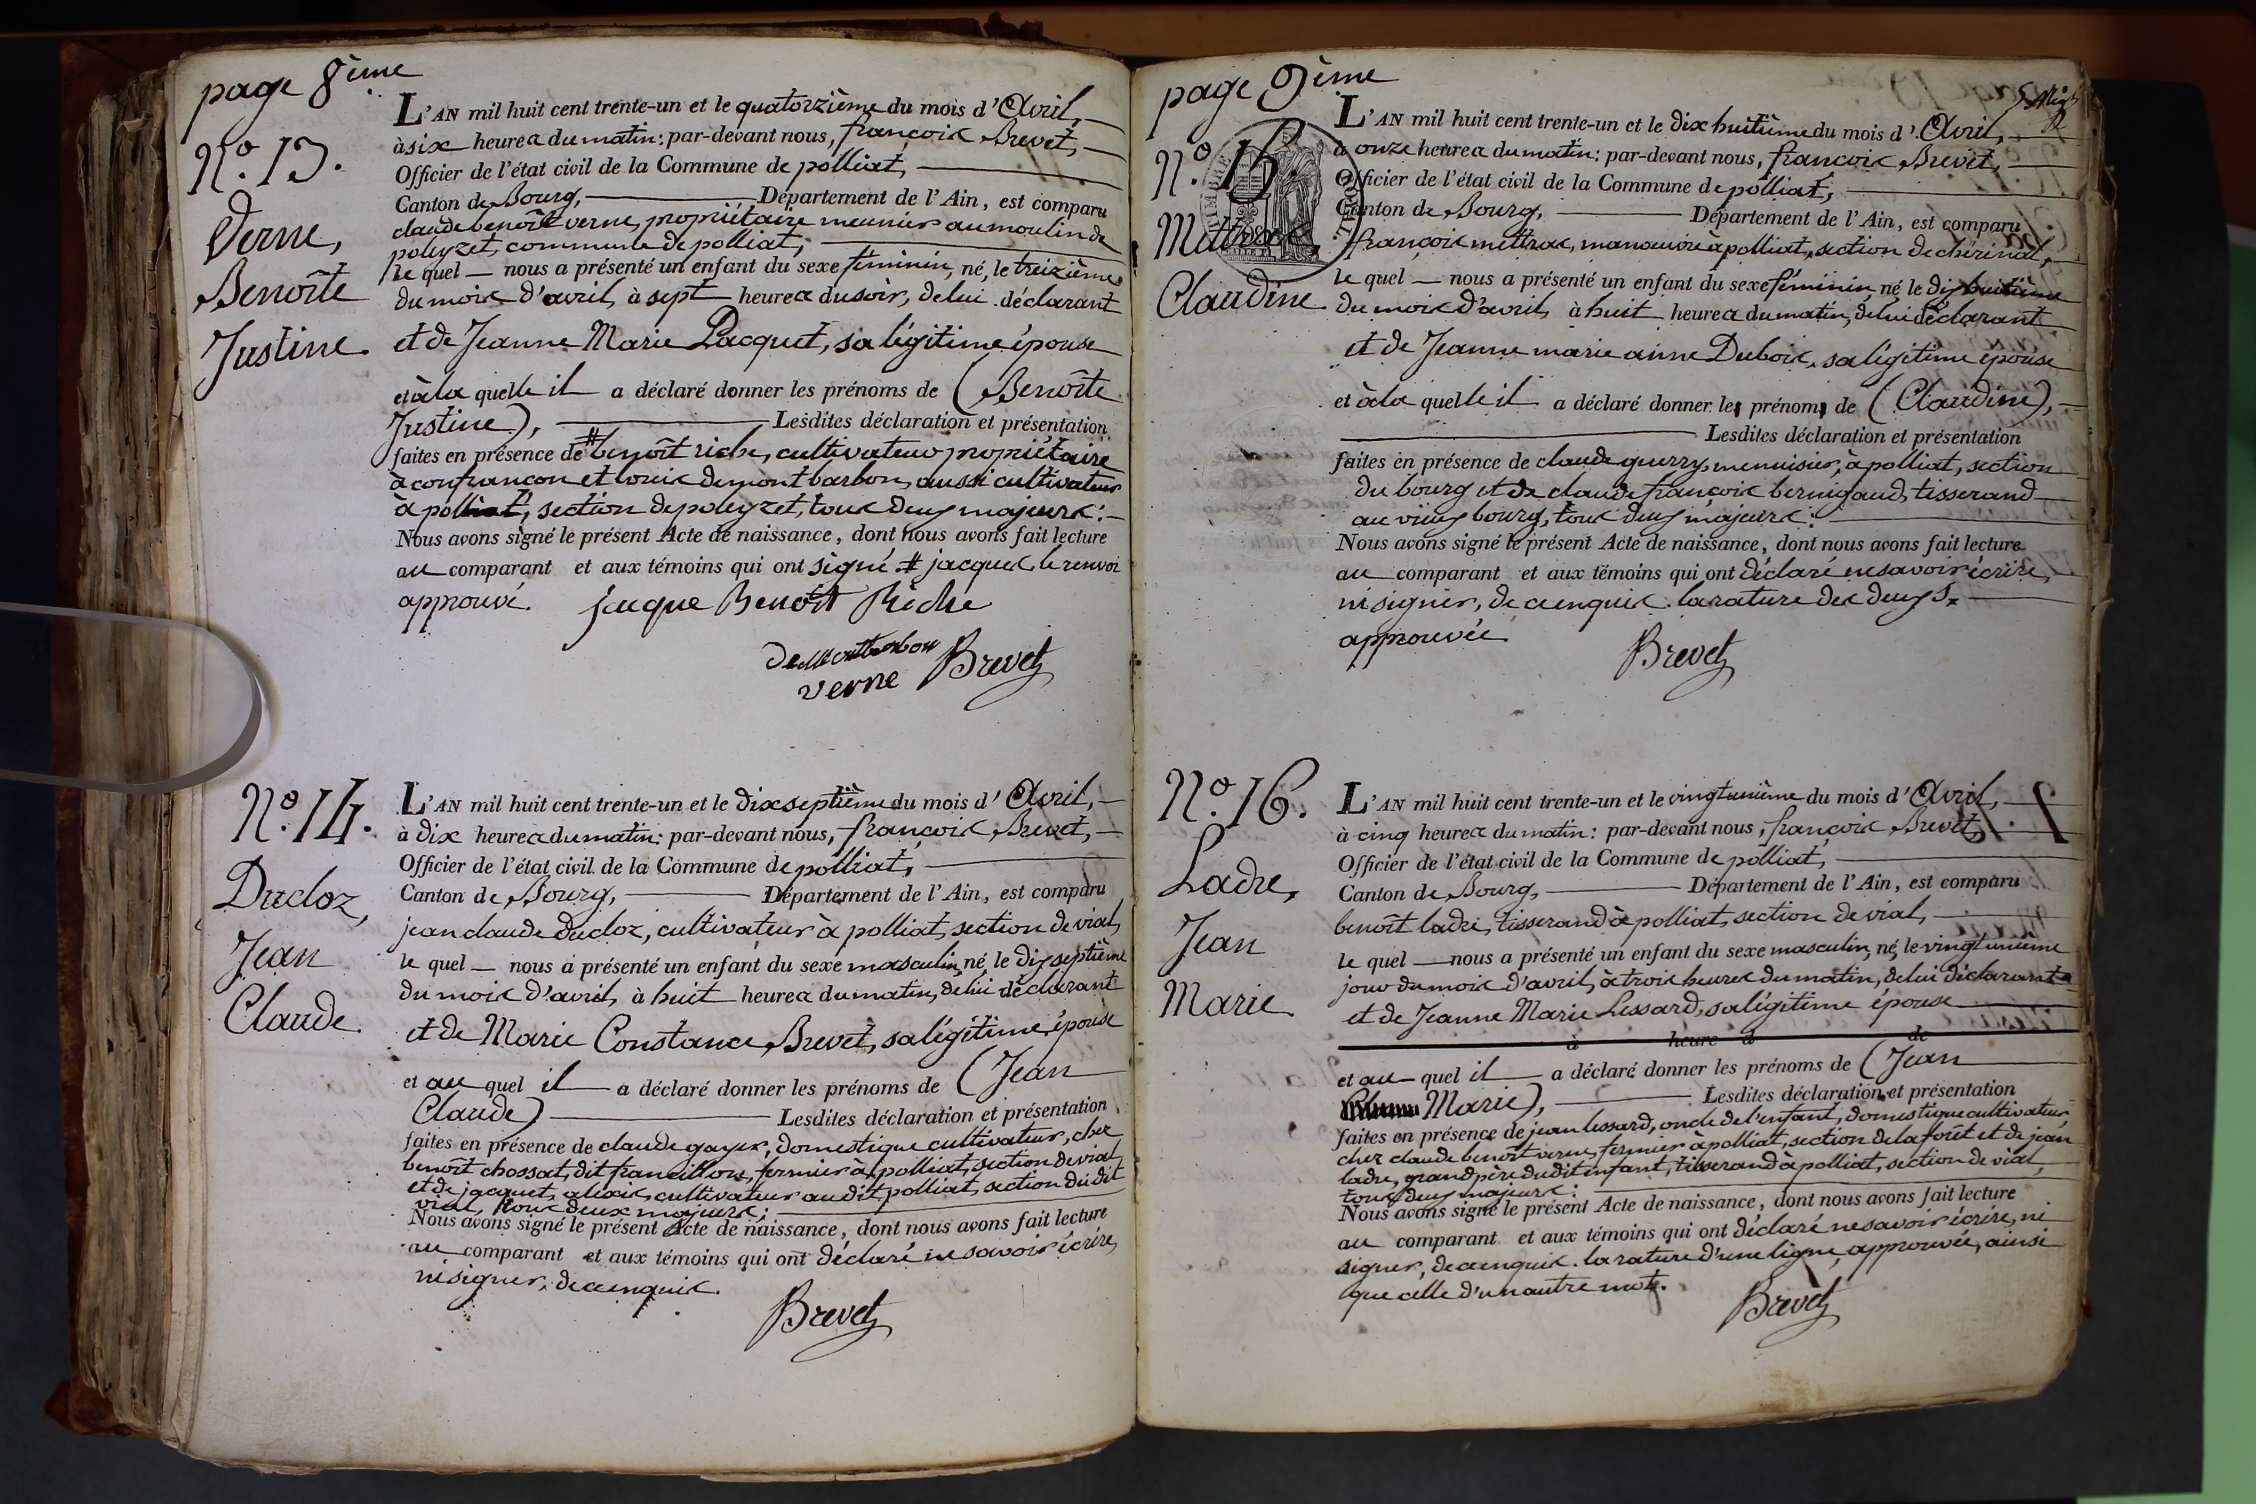 page 8ème
N.º 13.
Verne,
Benoîte
Justine.
L'AN mil huit cent trente-un et le quatorzième du mois d'Avril,
à six heures du matin: par-devant nous, françois Brevet,
Officier de l'état civil de la Commune de polliat,
Canton de Bourg, Département de l'Ain, est comparu
claude benoît verne, propriétaire meunier au moulin de
polyzet, commune de polliat,
le quel nous a présenté un enfant du sexe féminin, né, le treizième
du mois d'avril, à sept heures du soir, de lui déclarant
et de Jeanne Marie Pacquet, sa légitime épouse
et à la quelle il a déclaré donner les prénoms de (Benoîte
Justine), Lesdites déclaration et présentation
faites en présence de # benoît riche, cultivateur propriétaire
à confrancon et louis demontbarbon, aussi cultivateur
à polliat, section de polyzet, tous deux majeurs:
Nous avons signé le présent Acte de naissance, dont nous avons fait lecture
au comparant et aux témoins qui ont signé. # jacques, le renvoi
approuvé. jacque Benoît Riche
demontbarbon
verne Brevet
N.º 14.
Ducloz,
Jean
Claude.
L'AN mil huit cent trente-un et le dix septième du mois d'Avril,
à dix heures du matin: par-devant nous, françois Brevet,
Officier de l'état civil de la Commune de polliat,
Canton de Bourg, Département de l'Ain, est comparu
jean claude ducloz, cultivateur à polliat, section de vial,
le quel nous a présenté un enfant du sexe masculin, né, le dix septième
du mois d'avril, à huit heures du matin, de lui déclarant
et de Marie Constance Brevet, sa légitime épouse
et au quel il a déclaré donner les prénoms de (Jean
Claude) Lesdites déclaration et présentation
faites en présence de claude gayer, domestique cultivateur, chez
benoît chossat, dit francillon, fermier à polliat, section de vial,
et de jacquet cultivateur au dit polliat, section du dit
vial, tous deux majeurs;
Nous avons signé le présent Acte de naissance, dont nous avons fait lecture
au comparant et aux témoins qui ont déclaré ne savoir écrire,
ni signer, de ce enquis.
Brevet
page 9ème
N.º 15.
Mettrax,
Claudine
L'AN mil huit cent trente-un et le dix huitième du mois d'Avril,
à onze heures du matin: par-devant nous, françois Brevet,
Officier de l'état civil de la Commune de polliat,
Canton de Bourg, Département de l'Ain, est comparu
françois mettrax, manouvre à polliat, section de chérinal,
le quel nous a présenté un enfant du sexe féminin, né, le dix huitième
du mois d'avril, à huit heures du matin, de lui déclarant
et de Jeanne marie anne Dubois, sa légitime épouse
et à la quelle il a déclaré donner les prénoms de (Claudine),
Lesdites déclaration et présentation
faites en présence de claude querry, menuisier, à polliat, section
du bourg et de claude françois bernigaud, tisserand
au vieux bourg, tous deux majeurs:
Nous avons signé le présent Acte de naissance, dont nous avons fait lecture
au comparant et aux témoins qui ont déclaré ne savoir écrire,
ni signer, de ce enquis. la rature des deux s,
approuvée
Brevet
N.º 16.
Ladre,
Jean
Marie
L'AN mil huit cent trente-un et le vingt unième du mois d'Avril,
à cinq heures du matin: par-devant nous, françois Brevet,
Officier de l'état civil de la Commune de polliat,
Canton de Bourg, Département de l'Ain, est comparu
benoît ladre, tisserand à polliat, section de vial,
le quel nous a présenté un enfant du sexe masculin, né, le vingt unième
jour du mois d'avril, à trois heures du matin, de lui déclarant
et de Jeanne Marie Lessard, sa légitime épouse
à heure d de
et au quel il a déclaré donner les prénoms de (Jean
Marie), Lesdites déclaration et présentation
faites en présence de jean lessard, oncle de l'enfant, domestique cultivateur
chez claude benoît verne, fermier à polliat, section de la forêt et de jean
ladre, grand père dudit enfant, tisserand à polliat, section de vial,
tous deux majeurs:
Nous avons signé le présent Acte de naissance, dont nous avons fait lecture
au comparant et aux témoins qui ont déclaré ne savoir écrire, ni
signer, de ce enquis. la rature d'une ligne, approuvée, ainsi
que celle d'un autre mot.
Brevet